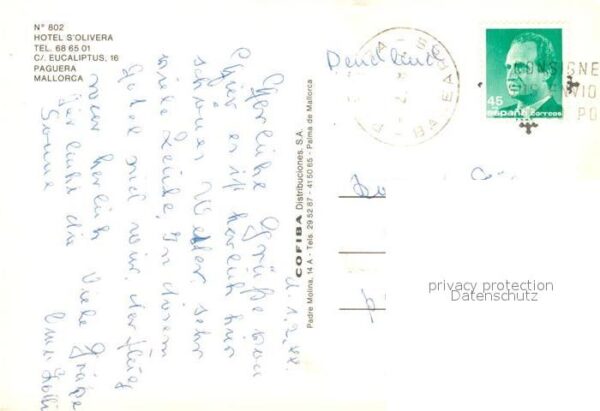 N° 802
HOTEL S'OLIVERA
TEL. 68 65 01
C/. EUCALIPTUS, 16
PAGUERA
MALLORCA
d. 1.2.88.
Herliche Grüße von
hier es ist herlich hier
schönes Wetter sehr
viele Leute. In diesem
Hotel sind wir. Der Flug
war herlich Viele Grüße
hier lacht die
Sonne
COFIBA Distribuciones, S.A.
Padre Molina, 14 A - Tels. 29 52 87 - 41 50 65 - Palma de Mallorca
45
españa correos
CONSIGNE
PO
privacy protection
Datenschutz